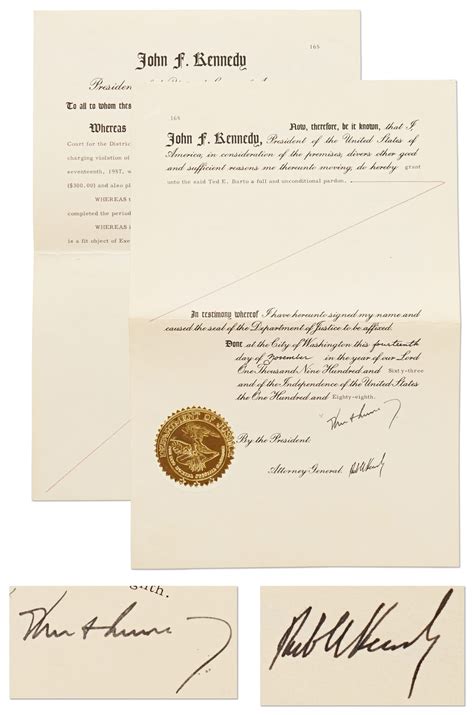 165
John F. Kennedy
President
To all to whom these
Whereas
Court for the District
charging violation of
seventeenth, 1957,
($300.00) and also
WHEREAS
completed the period
is a fit object of Exe
165
Now, therefore, be it known, that I,
John F. Kennedy, President of the United States of
America, in consideration of the premises, divers other good
and sufficient reasons me thereunto moving, do hereby grant
unto the said Ted E. Barto a full and unconditional pardon.
In testimony whereof I have hereunto signed my name and
caused the seal of the Department of Justice to be affixed.
Done at the City of Washington this fourteenth
day of November in the year of our Lord
One Thousand Nine Hundred and Sixty-three
and of the Independence of the United States
the One Hundred and Eighty-eighth.
By the President:
Attorney General.
DEPARTMENT OF JUSTICE
ghth.